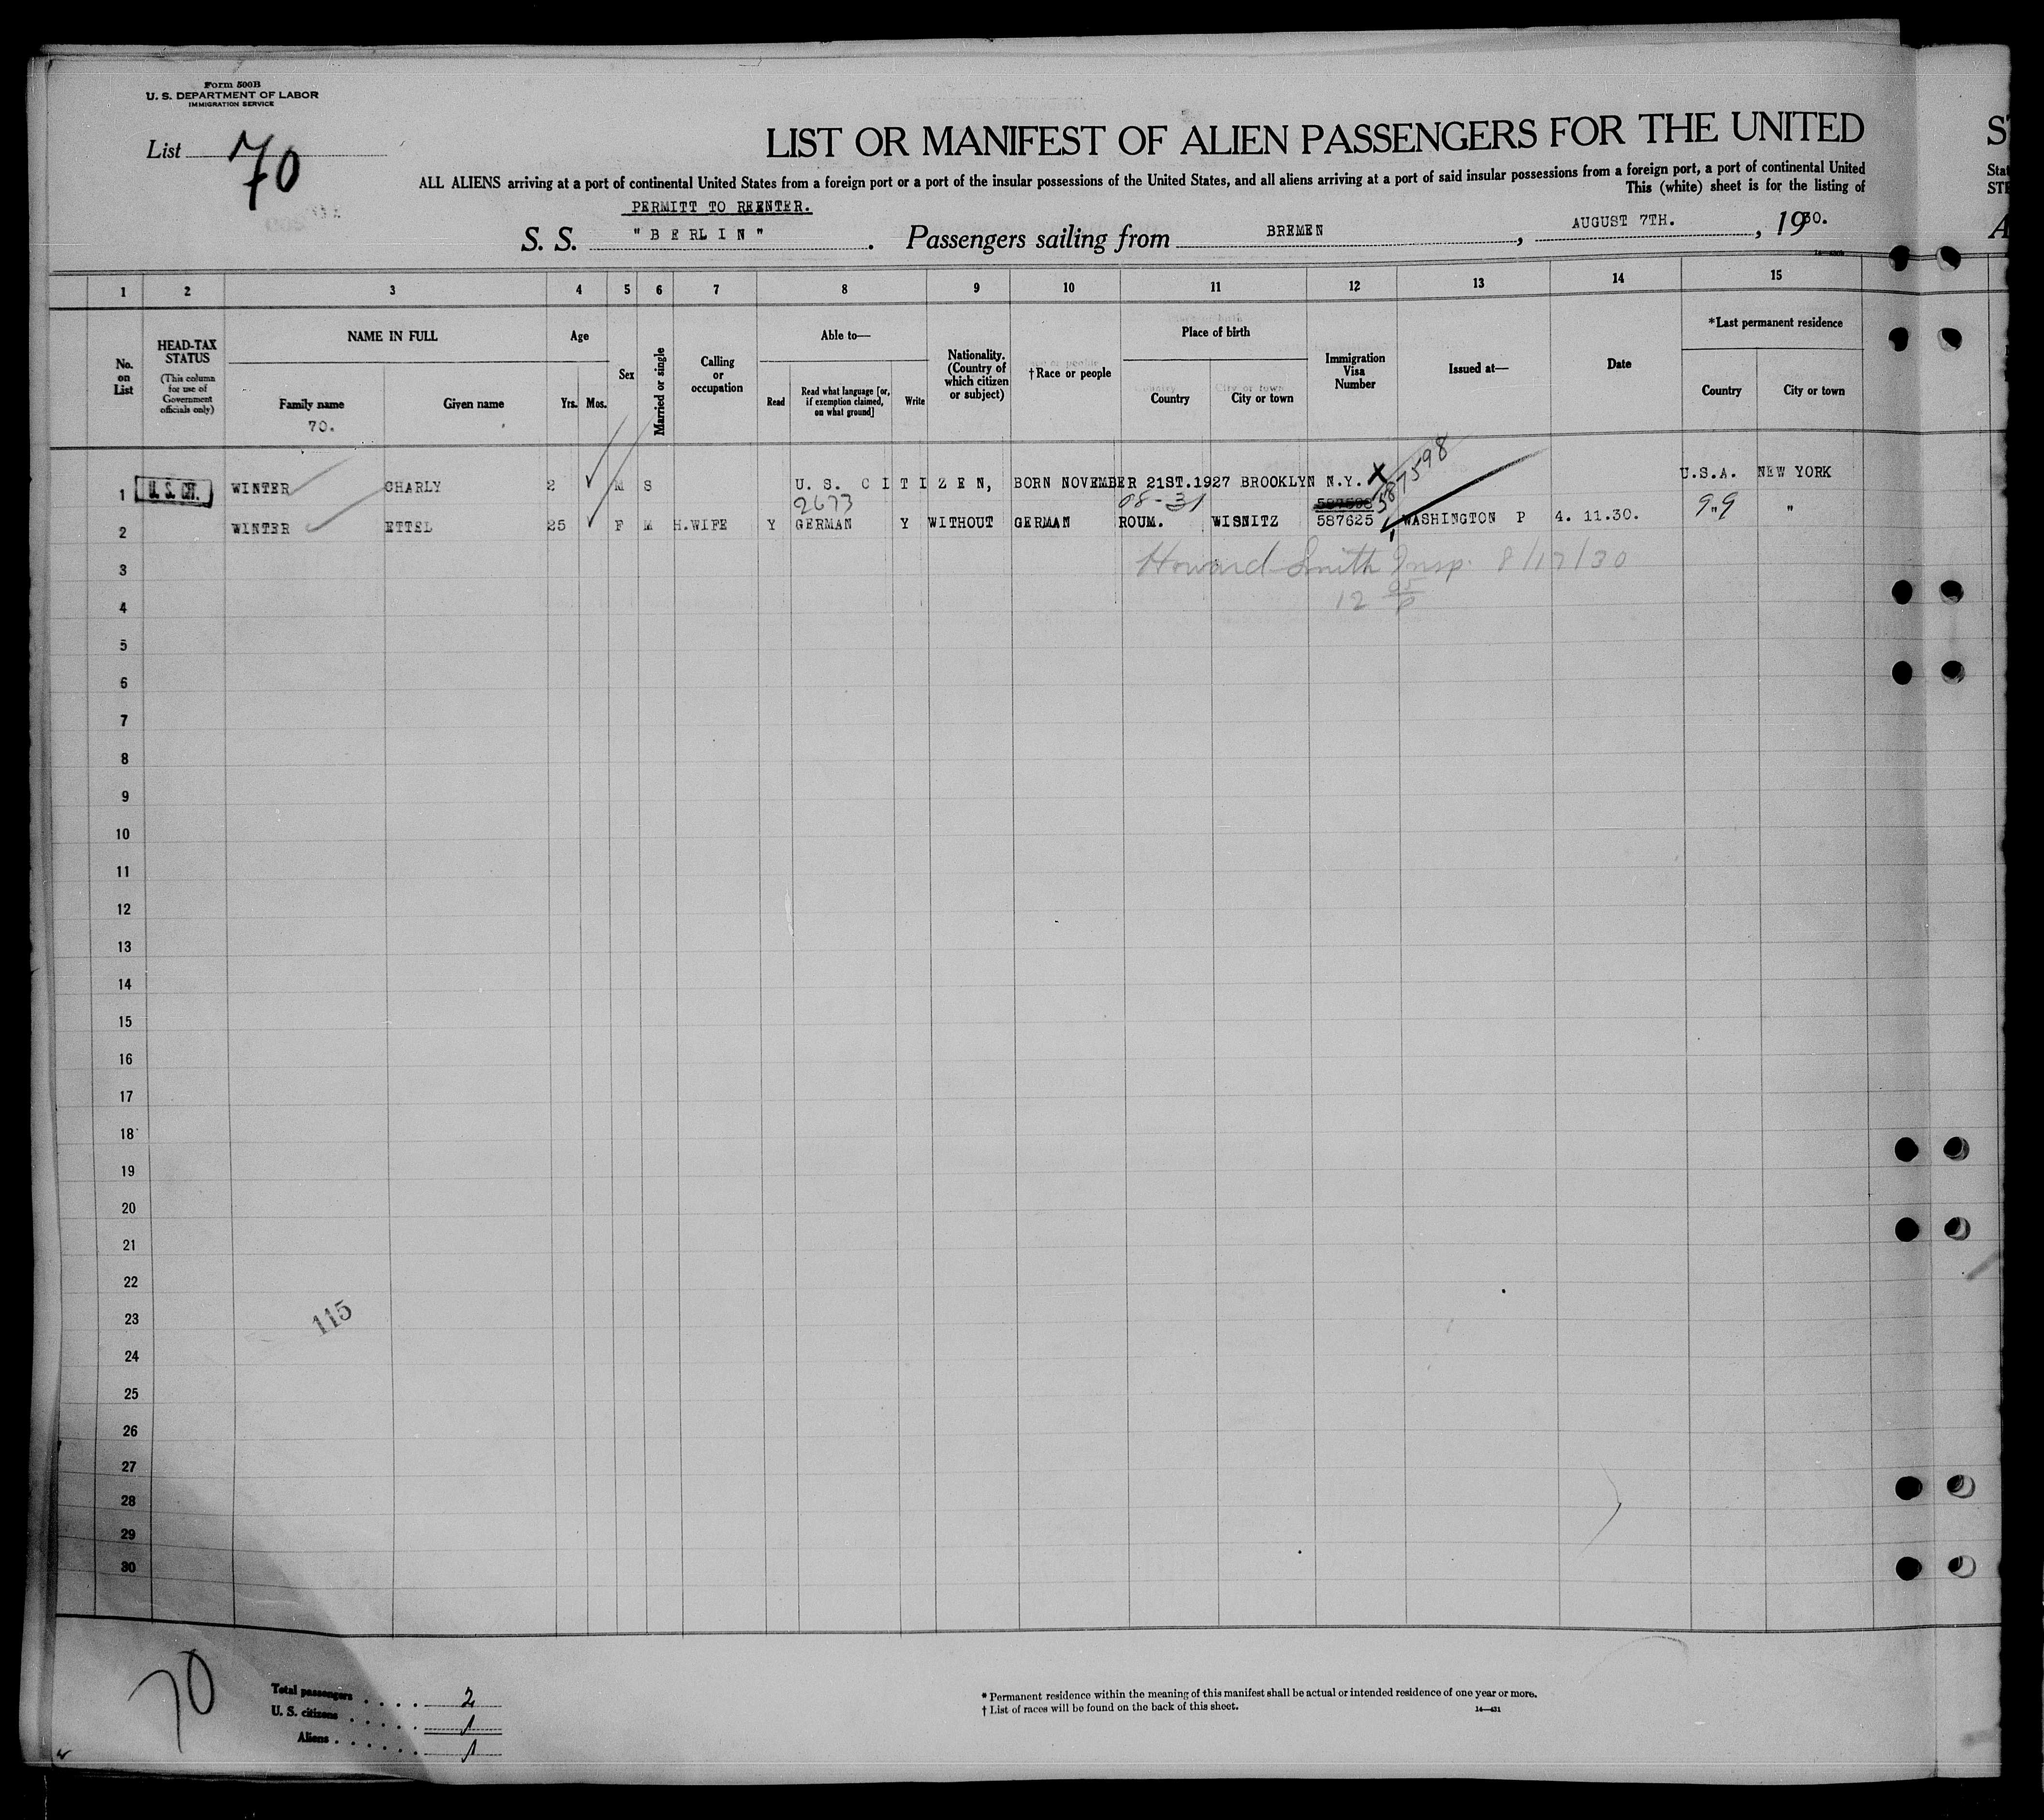 Form 500B
U. S. DEPARTMENT OF LABOR
IMMIGRATION SERVICE
List 70
LIST OR MANIFEST OF ALIEN PASSENGERS FOR THE UNITED
ALL ALIENS arriving at a port of continental United States from a foreign port or a port of the insular possessions of the United States, and all aliens arriving at a port of said insular possessions from a foreign port, a port of continental United
This (white) sheet is for the listing of
PERMITT TO REENTER.
S. S. "BERLIN". Passengers sailing from BREMEN, AUGUST 7TH., 1930.
1 2 3 4 5 6 7 8 9 10 11 12 13 14 15
No. on List
HEAD-TAX STATUS
(This column for use of Government officials only)
NAME IN FULL
Family name
70.
Given name
Age
Yrs. Mos.
Sex
Married or single
Calling or occupation
Able to—
Read
Read what language [or, if exemption claimed, on what ground]
Write
Nationality. (Country of which citizen or subject)
†Race or people
Place of birth
Country
City or town
Immigration Visa Number
Issued at—
Date
*Last permanent residence
Country
City or town
1 U. S. CIT. WINTER CHARLY 2 M S U. S. CITIZEN, BORN NOVEMBER 21ST.1927 BROOKLYN N.Y. X 587598 U.S.A. NEW YORK
2673 08-31 587598 99
2 WINTER ETTEL 25 F M H.WIFE Y GERMAN Y WITHOUT GERMAN ROUM. WISNITZ 587625 WASHINGTON P 4. 11.30. " "
3 Howard Smith Insp. 8/17/30
4 12
5
6
7
8
9
10
11
12
13
14
15
16
17
18
19
20
21
22
23 115
24
25
26
27
28
29
30
70
Total passengers . . . . 2
U. S. citizens . . . . . . 1
Aliens . . . . . . . 1
* Permanent residence within the meaning of this manifest shall be actual or intended residence of one year or more.
† List of races will be found on the back of this sheet.
14—431